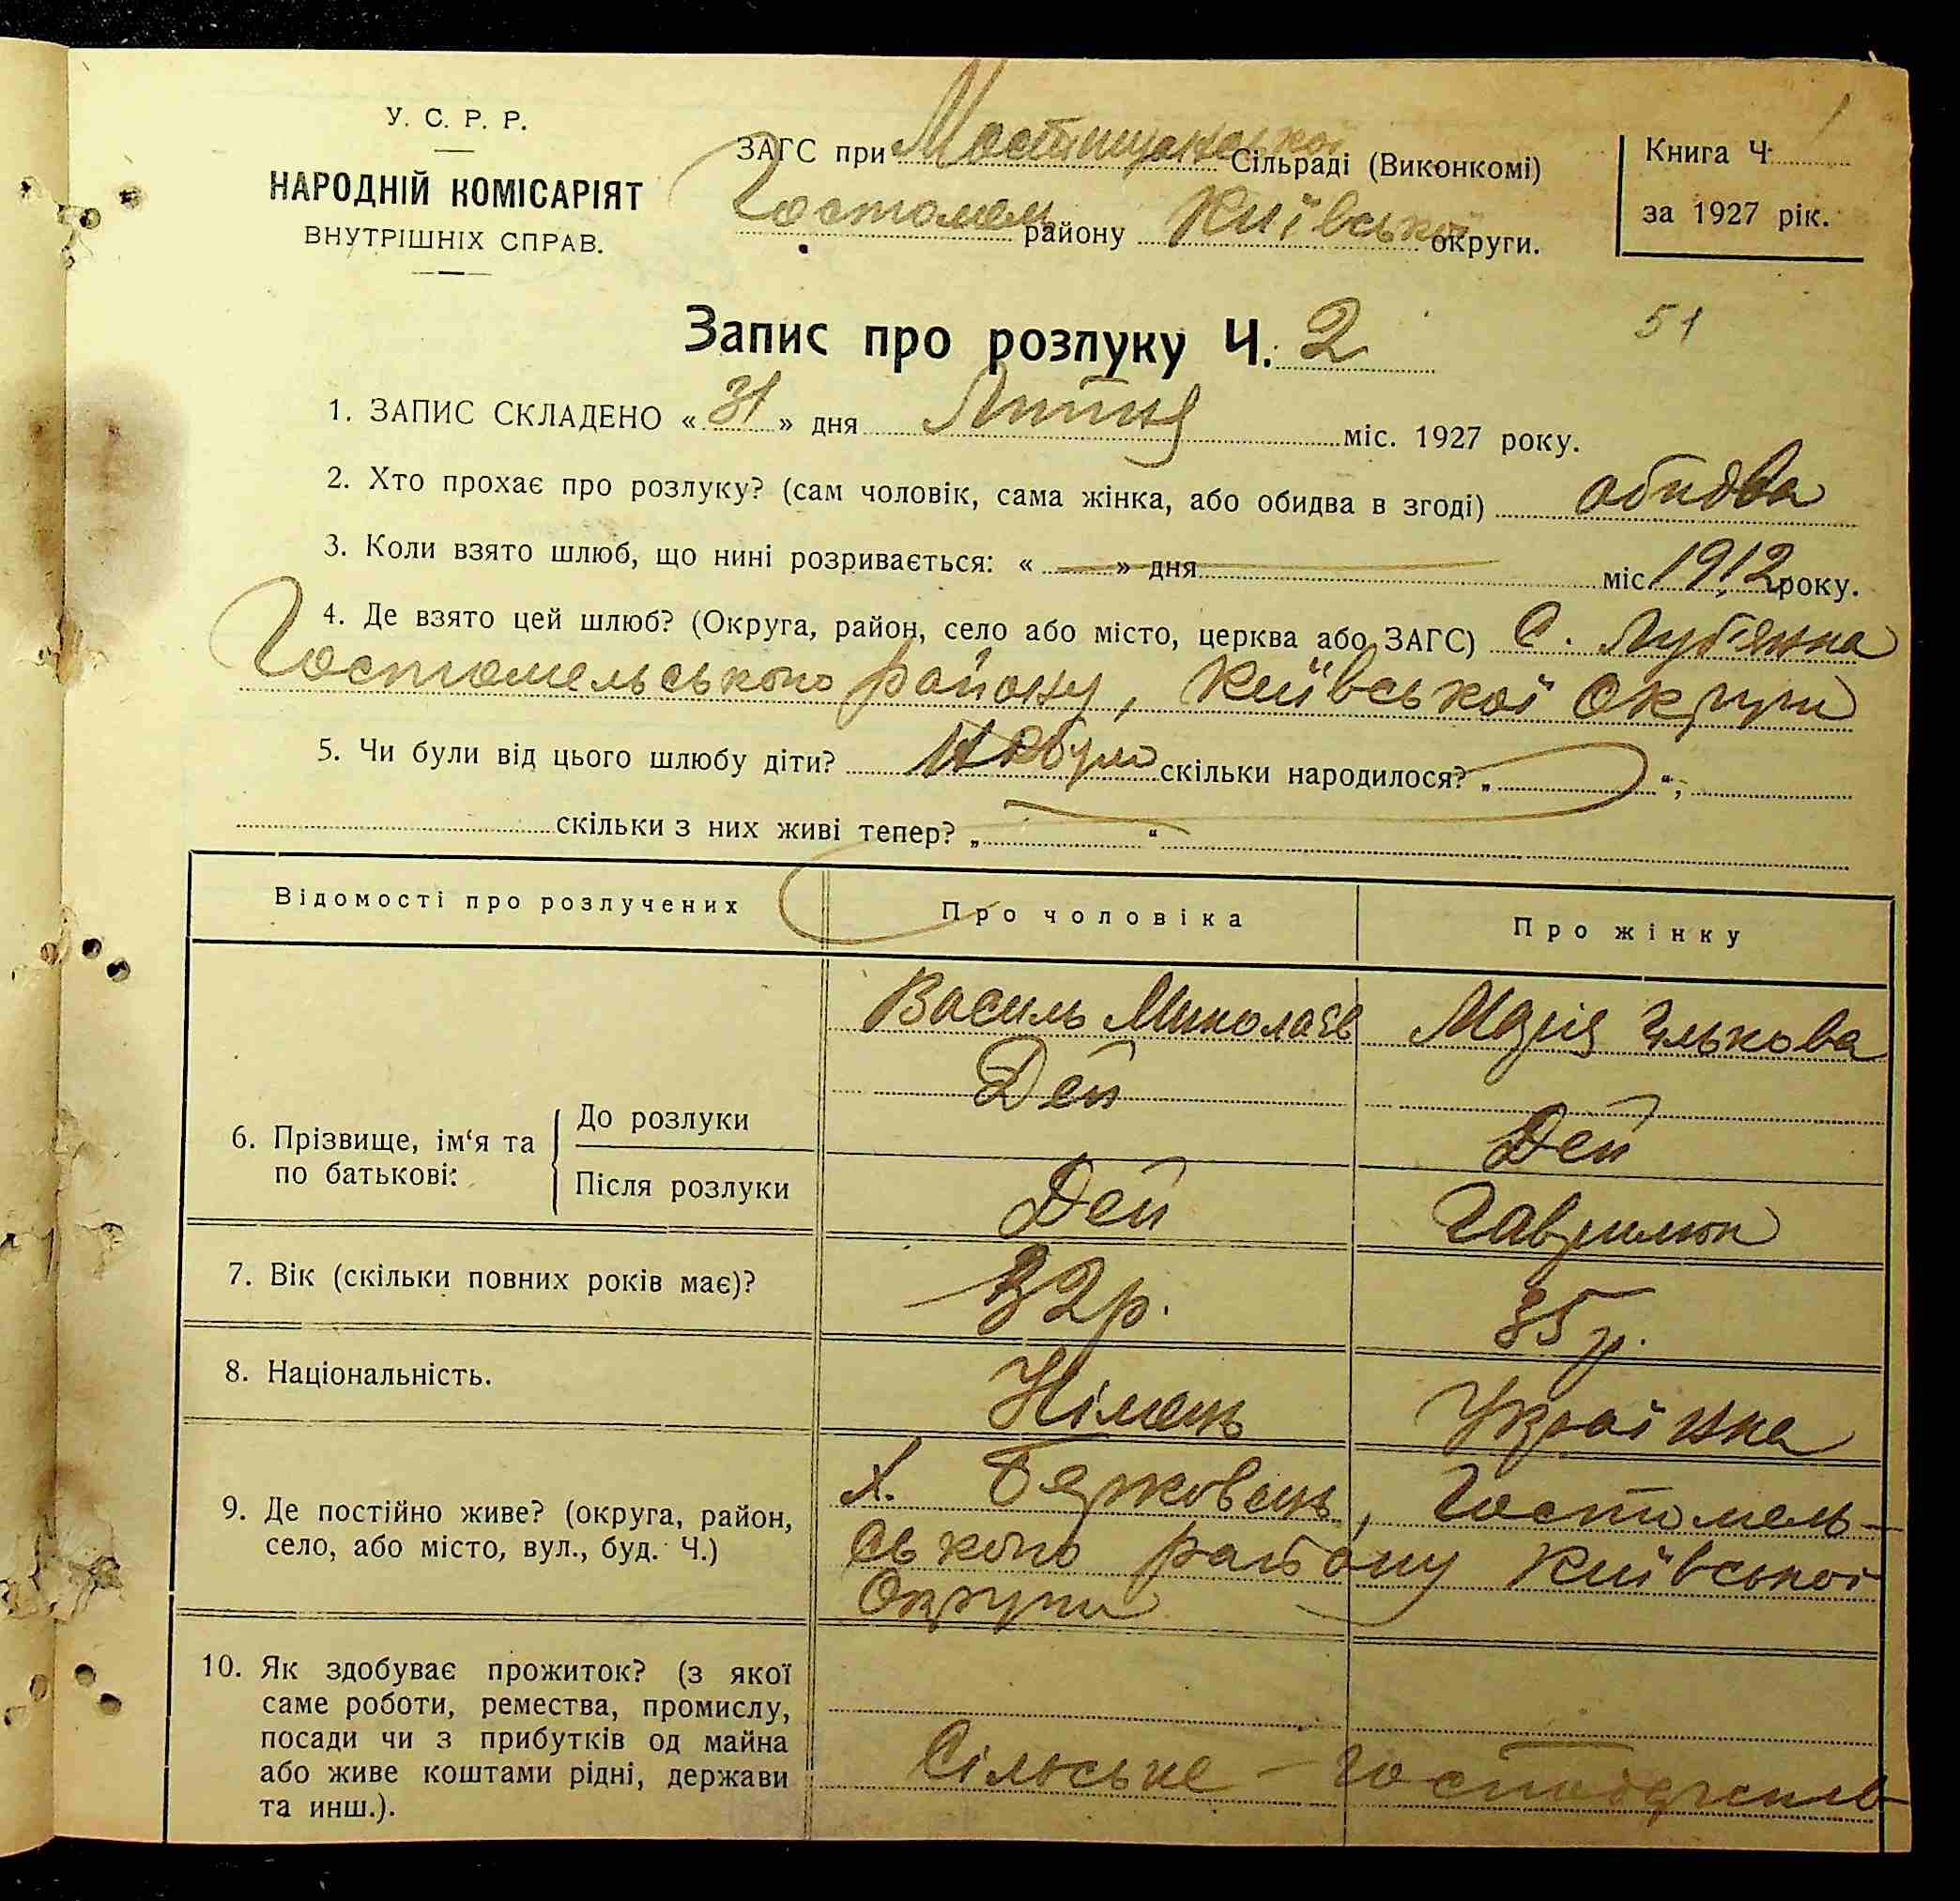 У. С. Р. Р.
НАРОДНІЙ КОМІСАРІЯТ
ВНУТРІШНІХ СПРАВ.
ЗАГС при Мостищанської Сільраді (Виконкомі)
Гостомель району Київської округи.
Книга Ч.
за 1927 рік.
51
Запис про розлуку Ч. 2
1. ЗАПИС СКЛАДЕНО « 31 » дня Липня міс. 1927 року.
2. Хто прохає про розлуку? (сам чоловік, сама жінка, або обидва в згоді) обидва
3. Коли взято шлюб, що нині розривається: « — » дня міс. 1912 року.
4. Де взято цей шлюб? (Округа, район, село або місто, церква або ЗАГС) С. Луб'янка
Гостомельського району, Київської Округи
5. Чи були від цього шлюбу діти? Не було скільки народилося? „ “;
скільки з них живі тепер? „ “
Відомості про розлучених Про чоловіка Про жінку
Василь Миколаєв Марія Ількова
Дей
6. Прізвище, ім‘я та по батькові: До розлуки Дей
Після розлуки Дей Гаврилюк
7. Вік (скільки повних років має)? 32 р. 35 р.
8. Національність. Німець Українка
9. Де постійно живе? (округа, район, село, або місто, вул., буд. Ч.) х. Берковець, Гостомель-
ського району Київської
Округи
10. Як здобуває прожиток? (з якої
саме роботи, ремества, промислу,
посади чи з прибутків од майна
або живе коштами рідні, держави
та инш.).
Сільське -